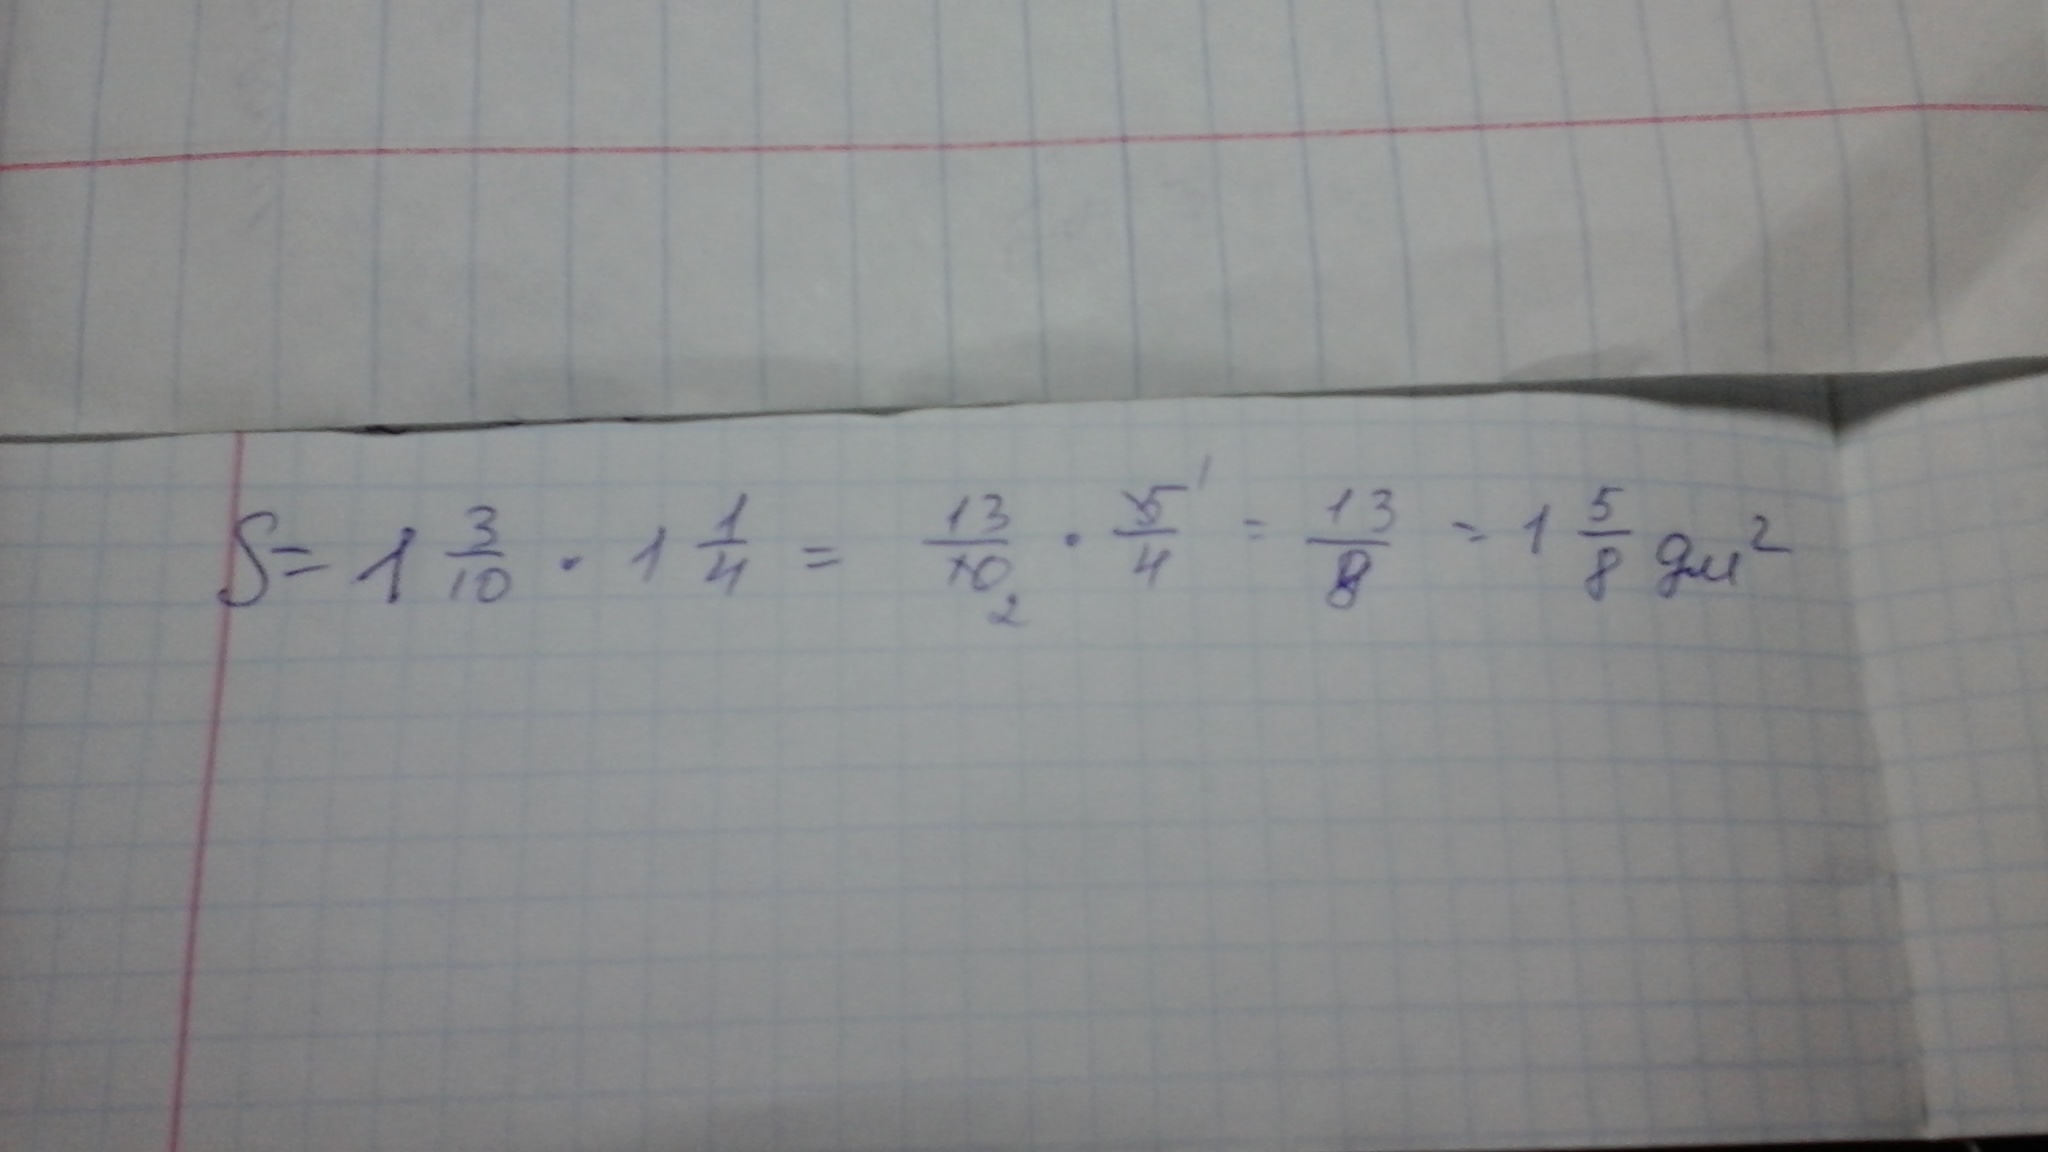 S = 1 3/10 · 1 1/4 = 13/10 2 · 5/4 1 = 13/8 = 1 5/8 дм²